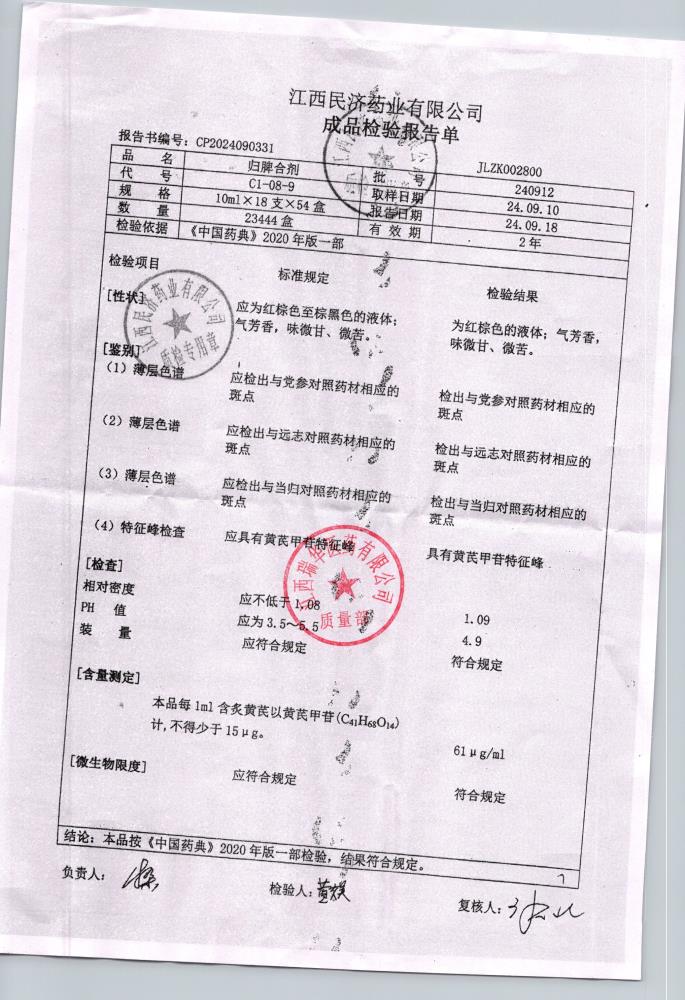 江西民济药业有限公司
成品检验报告单
报告书编号：CP2024090331 JLZK002800
品 名 归脾合剂 批 号 240912
代 号 C1-08-9 取样日期 24.09.10
规 格 10ml×18支×54盒 报告日期 24.09.18
数 量 23444盒 有 效 期 2年
检验依据 《中国药典》2020年版一部
检验项目 标准规定 检验结果
[性状] 应为红棕色至棕黑色的液体； 为红棕色的液体；气芳香，
气芳香，味微甘、微苦。 味微甘、微苦。
江西民济药业有限公司
质检专用章
[鉴别]
（1）薄层色谱 应检出与党参对照药材相应的 检出与党参对照药材相应的
斑点 斑点
（2）薄层色谱 应检出与远志对照药材相应的 检出与远志对照药材相应的
斑点 斑点
（3）薄层色谱 应检出与当归对照药材相应的 检出与当归对照药材相应的
斑点 斑点
（4）特征峰检查 应具有黄芪甲苷特征峰 具有黄芪甲苷特征峰
江西瑞华医药有限公司
质量部
[检查]
相对密度 应不低于1.08 1.09
PH 值 应为3.5～5.5 4.9
装 量 应符合规定 符合规定
[含量测定]
本品每1ml含炙黄芪以黄芪甲苷(C₄₁H₆₈O₁₄)
计,不得少于15μg。 61μg/ml
[微生物限度] 应符合规定 符合规定
结论：本品按《中国药典》2020年版一部检验，结果符合规定。
负责人： 检验人： 复核人：